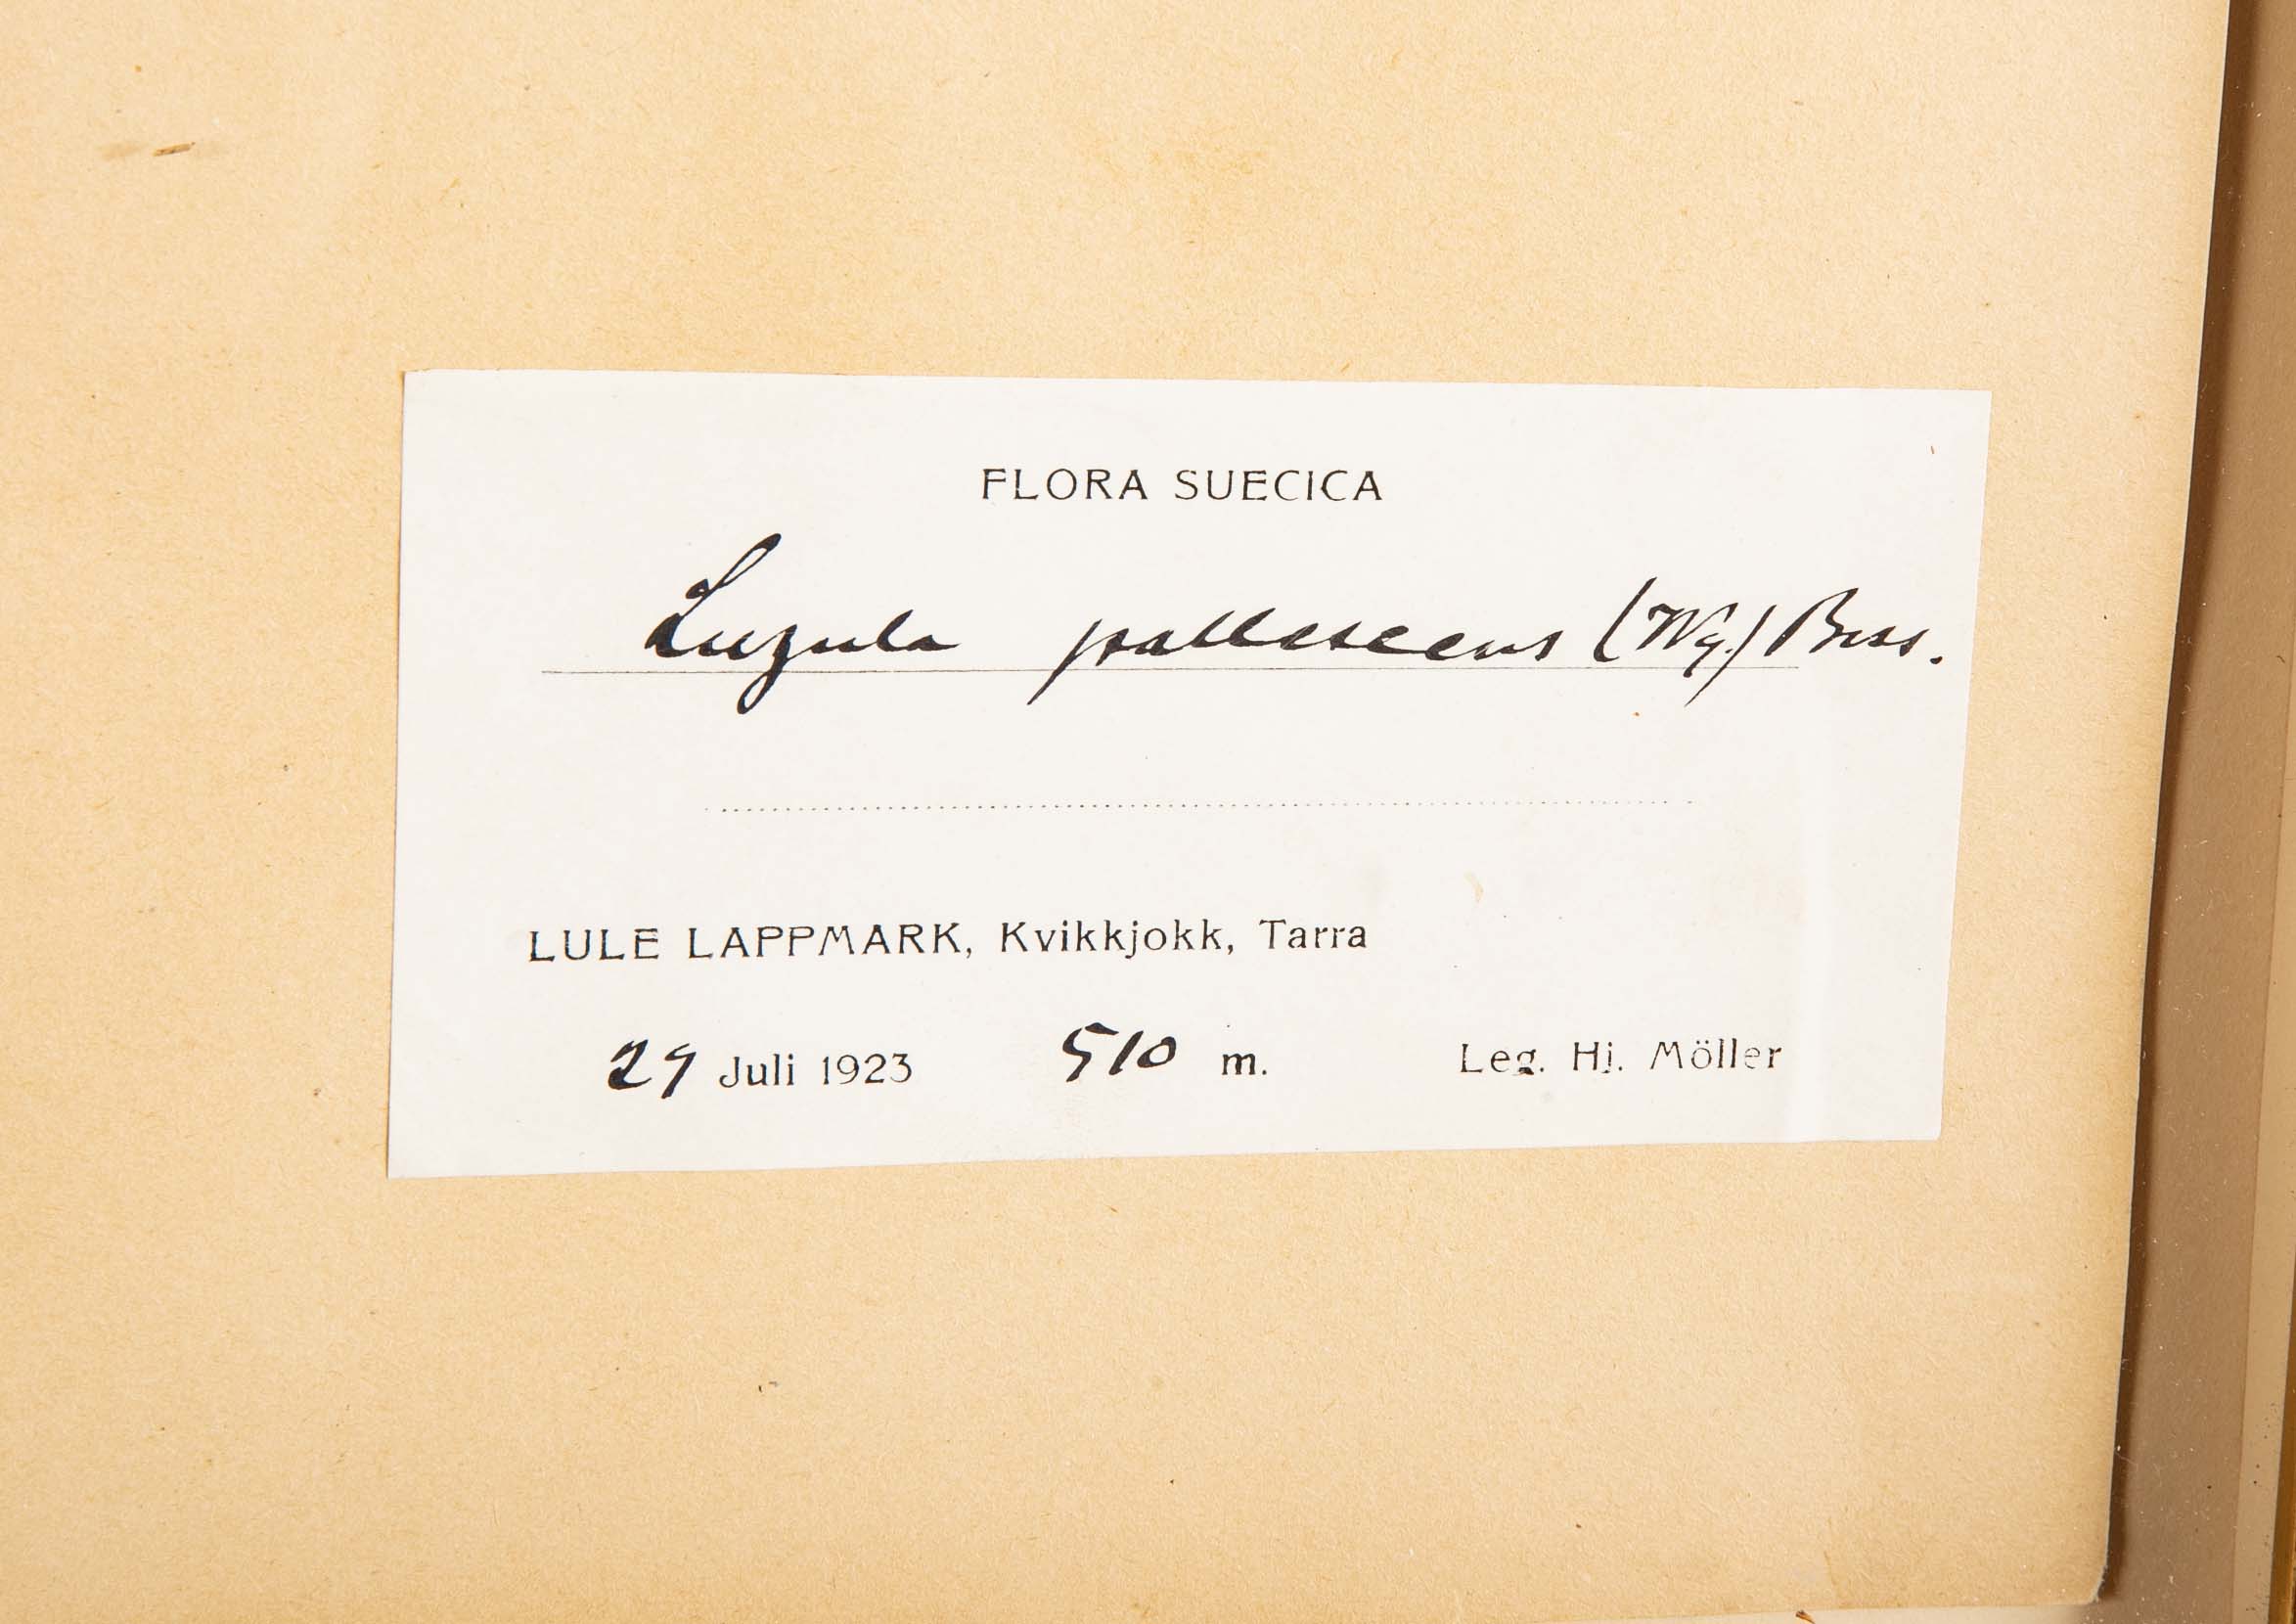 FLORA SUECICA
Luzula pallescens (Wg.) Bess.
LULE LAPPMARK, Kvikkjokk, Tarra
29 Juli 1923 510 m. Leg. Hj. Möller